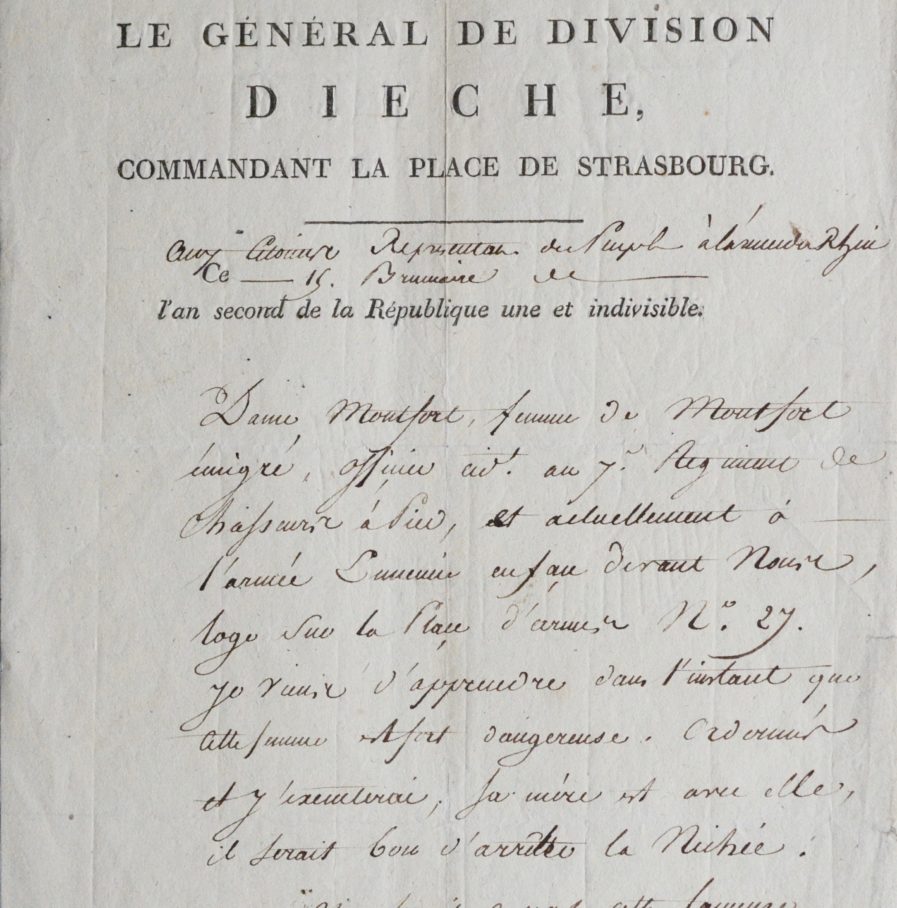 LE GÉNÉRAL DE DIVISION
DIECHE,
COMMANDANT LA PLACE DE STRASBOURG.
aux Citoiens Représentans du Peuple à l'armée du Rhin
Ce — 15. Brumaire de —
l'an second de la République une et indivisible.
Dame Montfort, femme de Montfort
émigré, officier cid.t au 7.e Régiment de
chasseurs à Pied, et actuellement à
l'armée Ennemie en face devant Nous,
loge sur la Place d'armes N.o 27.
je viens d'apprendre dans l'instant que
cette femme est fort dangereuse.
et j'exécuterai, sa mère est avec elle,
il serait bon d'arrêter la Nichée.
cette